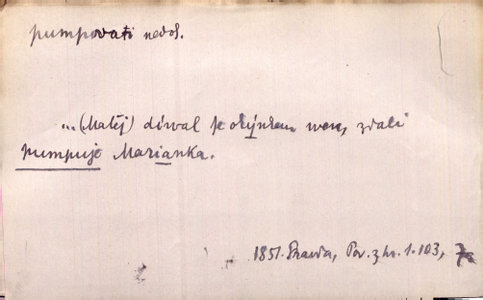 pumpovati nedok.
...(Matěj) díwal se okýnkem wen, zdali
pumpuje Marianka.
1851. Pravda, Pov. z hor. 1. 103,